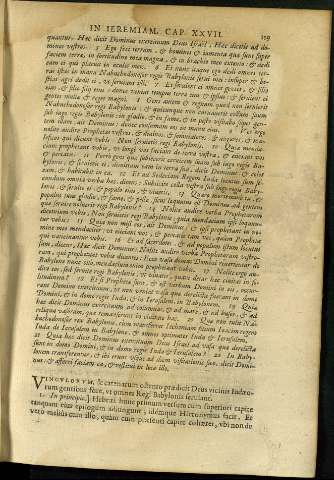 IN IEREMIAM, CAP. XXVII. 119
quantur, Hæc dicit Dominus exercituum Deus Israel, Hæc dicetis ad do-
minos vestros 5 Ego feci terram, & homines & iumenta quæ sunt super
faciem terræ, in fortitudine mea magna, & in brachio meo extento, & dedi
eam ei qui placuit in oculis meis. 6 Et nunc itaque ego dedi omnes ter-
ras istas in manu Nabuchodonosor regis Babylonis servi mei: insuper & be-
stias agri dedi ei, ut serviant illi. 7 Et servient ei omnes gentes, & filio
eius, & filio filij eius: donec veniat tempus terræ eius & ipsius: & servient ei
gentes multæ & reges magni. 8 Gens autem & regnum quod non servierit
Nabuchodonosor regi Babylonis, & quicumque non curvaverit collum suum
sub iugo regis Babylonis: in gladio, & in fame, & in peste visitabo super gen-
tem illam, ait Dominus: donec consumam eos in manu eius. 9 Vos ergo
nolite audire Prophetas vestros, & divinos, & somniatores, & augures, & ma-
leficos qui dicunt vobis, Non servietis regi Babylonis. 10 Quia menda-
cium prophetant vobis, ut longè vos faciant de terra vestra, & eiiciant vos
& pereatis. 11 Porrò gens quæ subiecerit cervicem suam sub iugo regis Ba-
bylonis, & servierit ei, dimittam eam in terra sua, ait Dominus: & colet
eam, & habitabit in ea. 12 Et ad Sedeciam Regem Iuda locutus sum se-
cundum omnia verba hæc, dicens: Subiicite colla vestra sub iugo regis Baby-
lonis, & servite ei & populo eius, & vivetis. 13 Quare moriemini tu, &
populus tuus gladio, & fame, & peste, sicut locutus est Dominus ad gentem
quæ servire noluerit regi Babylonis? 14 Nolite audire verba Prophetarum
dicentium vobis, Non servietis regi Babylonis: quia mendacium ipsi loquun-
tur vobis: 15 Quia non misi eos, ait Dominus: & ipsi prophetant in no-
mine meo mendaciter, ut eiiciant vos, & pereatis tam vos, quàm Prophetæ
qui vaticinantur vobis. 16 Et ad sacerdotes, & ad populum istum locutus
sum, dicens, Hæc dicit Dominus: Nolite audire verba Prophetarum vestro-
rum, qui prophetant vobis dicentes: Ecce vasa domus Domini revertentur de
Babylone nunc citò, mendacium enim prophetant vobis. 17 Nolite ergo au-
dire eos, sed servite regi Babylonis, ut vivatis, quare datur hæc civitas in so-
litudinem? 18 Et si Prophetæ sunt, & est verbum Domini in eis: occur-
rant Domino exercituum, ut non veniant vasa quæ derelicta fuerant in domo
Domini, & in domo regis Iuda & in Ierusalem in Babylonem. 19 Quia
hæc dicit Dominus exercituum ad columnas, & ad mare, & ad bases, & ad
reliqua vasorum, quæ remanserunt in civitate hac: 20 Quæ non tulit Na-
buchodonosor rex Babylonis, cum transferret Iechoniam filium Ioacim regem
Iuda de Ierusalem in Babylonem, & omnes optimates Iuda & Ierusalem.
21 Quia hæc dicit Dominus exercituum Deus Israel ad vasa quæ derelicta
sunt in domo Domini, & in domo regis Iuda & Ierusalem: 22 In Baby-
lonem transferentur, & ibi erunt usque ad diem visitationis suæ, dicit Domi-
nus, & afferri faciam ea, & restitui in loco isto.
VINCULORUM, & catenarum ostento prædicit Deus vicinis Iudæo-
rum gentibus fore, ut omnes Regi Babylonis serviant.
1. In principio.] Hebræi hunc primum versum cum superiori capite
tanquam eius epilogum adiungunt, idemque Hieronymus facit. Et
verò meliùs cum illo, quàm cum præsenti capite cohæret, ubi non de